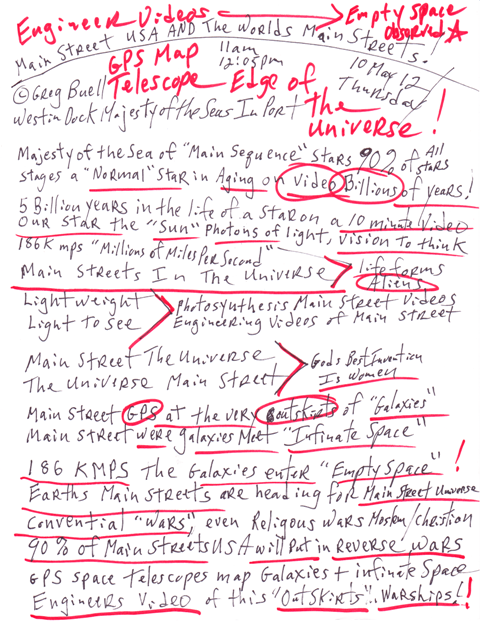 Engineer Videos → Empty space
Observed ☆
Main Street USA And The Worlds Main Streets!
GPS Map 11am 10 May 12
Telescope Edge of 12:05pm Thursday
© Greg Buell The
Westin Dock Majesty of the Seas In Port Universe!
Majesty of the Sea of "Main Sequence" Stars 90% of All Stars
stages a "Normal" Star in Aging on Video Billions of years!
5 Billion Years in the life of a Star on a 10 minute Video
Our Star the "Sun" Photons of light, Vision To think
186K mps "Millions of Miles Per Second"
Main Streets In The Universe > life forms
Aliens,
Light weight > Photosynthesis Main Street Videos
Light To See Engineering Videos of Main Street
Main Street The Universe > Gods Best Invention
The Universe Main Street Is Women
Main Street GPS at the very outskirts of "Galaxies"
Main Street were galaxies Meet "Infinate Space"
186 KMPS The Galaxies enter "Empty Space"!
Earths Main Streets are heading for Main Street Universe
Convential "Wars", even Religous Wars Moslem/Christion
90% of Main Streets USA will put in reverse wars
GPS space telescopes map Galaxies + infinate Space
Engineers Video of this "OutSkirts". Warships,!!